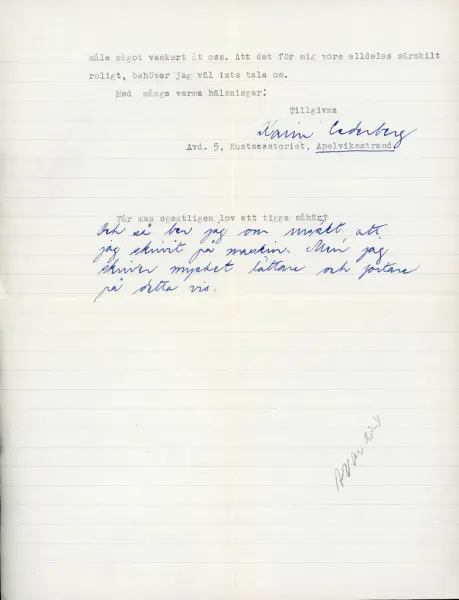 måla något vackert åt oss. Att det för mig vore alldeles särskilt
roligt, behöver jag väl inte tala om.
Med många varma hälsningar!
Tillgivna
Karin Cederberg
Avd. 5, Kustsanatoriet, Apelviksstrand
Får man egentligen lov att tigga såhär?
Och så ber jag om ursäkt att
jag skrivit på maskin. Men jag
skriver mycket lättare och fortare
på detta vis.